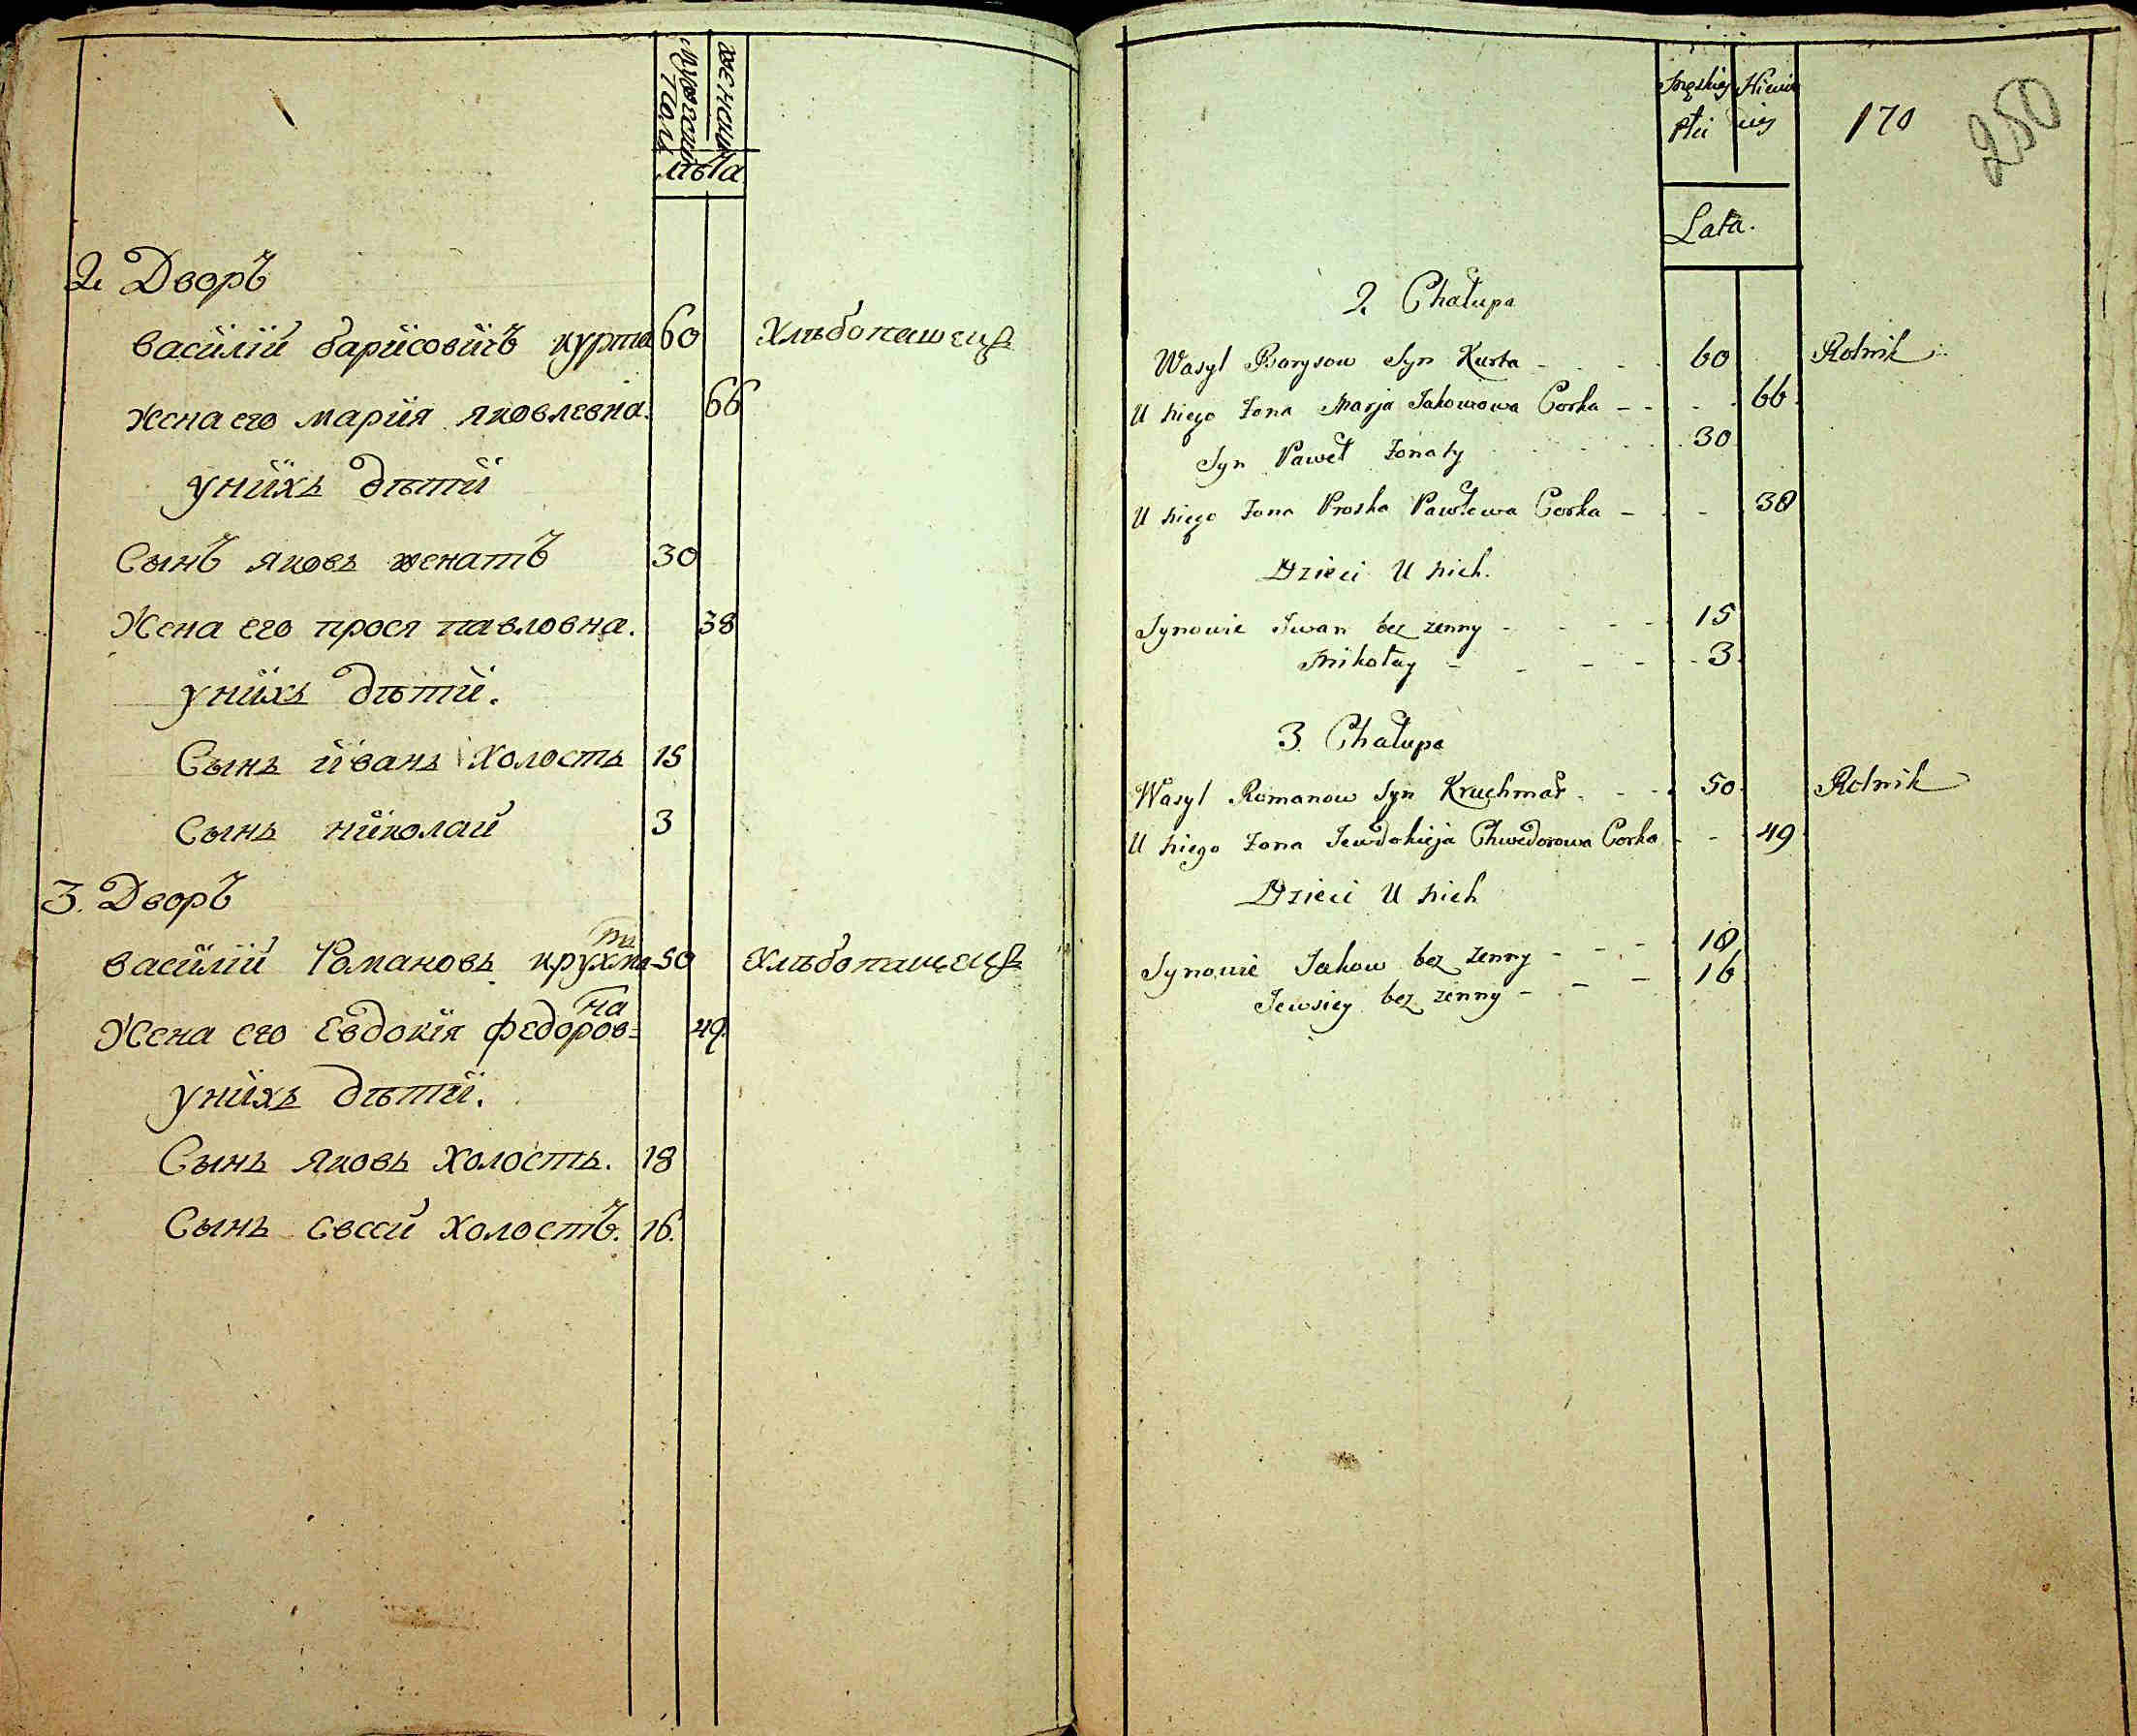 мужескій женскій
полъ
лѣта
2. Дворъ
василій барисовичъ курта 60 Хлѣбопашецъ
жена его мария яковлевна. 66
унихъ дѣти
Сынъ яковъ женатъ 30
Жена его прося павловна. 38
унихъ дѣти.
Сынъ иванъ холостъ 15
Сынъ николаи 3
3. Дворъ
василій Романовъ крухма 50 Хлѣбопашецъ
на
Жена его Евдокія федоров= 49.
унихъ дѣти.
Сынъ яковъ холостъ. 18
Сынъ евсей холостъ. 16.
Męzkiey Niewie
Płci
170
250
Lata.
2. Chałupa
Wasyl Barysow Syn Kurta - - - 60 Rolnik
U niego Zona Marja Jakowowa Corka - - - 66.
Syn Paweł Zonaty 30
U niego Zona Proska Pawłowa Corka - - 38
Dzieci U nich.
Synowie Iwan bez zenny - - - 15
Mikołay - - - - 3.
3. Chałupa
Wasyl Romanow Syn Kruchmař - - 50. Rolnik
U niego Zona Jewdokieja Chwedorowa Corka - - 49
Dzieci U nich
Synowie Jakow bez zenny - - - 18
Jewsiey bez zenny - - - 16